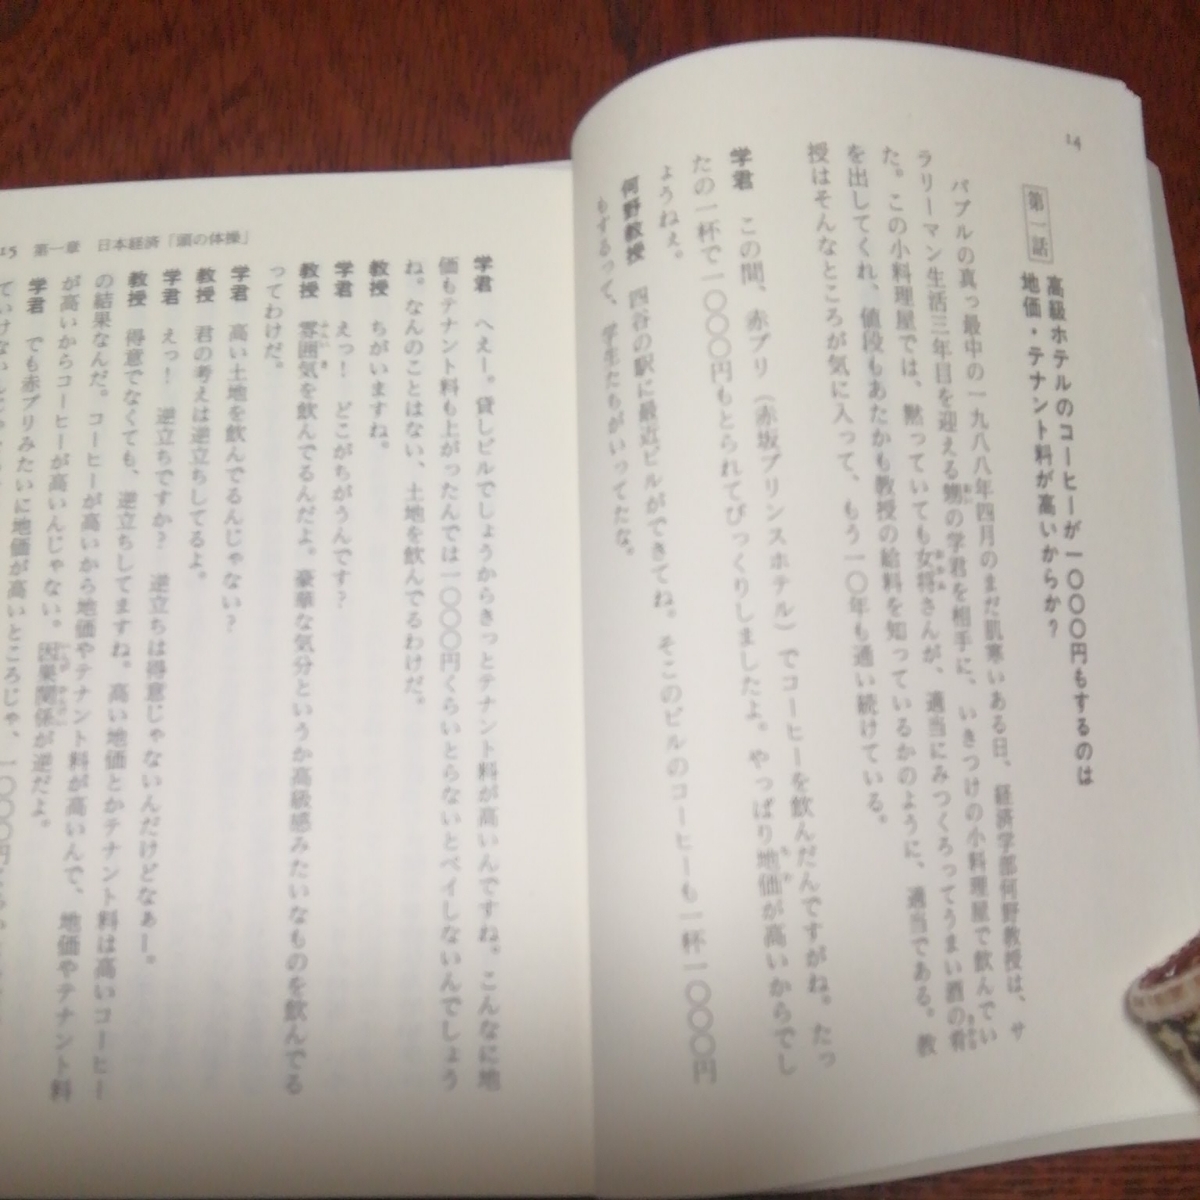 14
第一話
高級ホテルのコーヒーが一〇〇〇円もするのは
地価・テナント料が高いからか？
バブルの真っ最中の一九八八年四月のまだ肌寒いある日、経済学部何野教授は、サ
ラリーマン生活三年目を迎える甥の学君を相手に、いきつけの小料理屋で飲んでい
た。この小料理屋では、黙っていても女将さんが、適当にみつくろってうまい酒の肴
を出してくれ、値段もあたかも教授の給料を知っているかのように、適当である。教
授はそんなところが気に入って、もう一〇年も通い続けている。
学君　この間、赤プリ（赤坂プリンスホテル）でコーヒーを飲んだんですがね。たっ
たの一杯で一〇〇〇円もとられてびっくりしましたよ。やっぱり地価が高いからでし
ょうねぇ。
何野教授　四谷の駅に最近ビルができてね。そこのビルのコーヒーも一杯一〇〇〇円
もするって、学生たちがいってたな。
15　第一章　日本経済「頭の体操」
学君　へえー。貸しビルでしょうからきっとテナント料が高いんですね。こんなに地
価もテナント料も上がったんでは一〇〇〇円くらいとらないとペイしないんでしょう
ね。なんのことはない、土地を飲んでるわけだ。
教授　ちがいますね。
学君　えっ！　どこがちがうんです？
教授　雰囲気を飲んでるんだよ。豪華な気分というか高級感みたいなものを飲んでる
ってわけだ。
学君　高い土地を飲んでるんじゃない？
教授　君の考えは逆立ちしてるよ。
学君　えっ！　逆立ちですか？　逆立ちは得意じゃないんだけどなぁー。
教授　得意でなくても、逆立ちしてますね。高い地価とかテナント料は高いコーヒー
の結果なんだ。コーヒーが高いから地価やテナント料が高いんで、地価やテナント料
が高いからコーヒーが高いんじゃない。因果関係が逆だよ。
学君　でも赤プリみたいに地価が高いところじゃ、一〇〇〇円